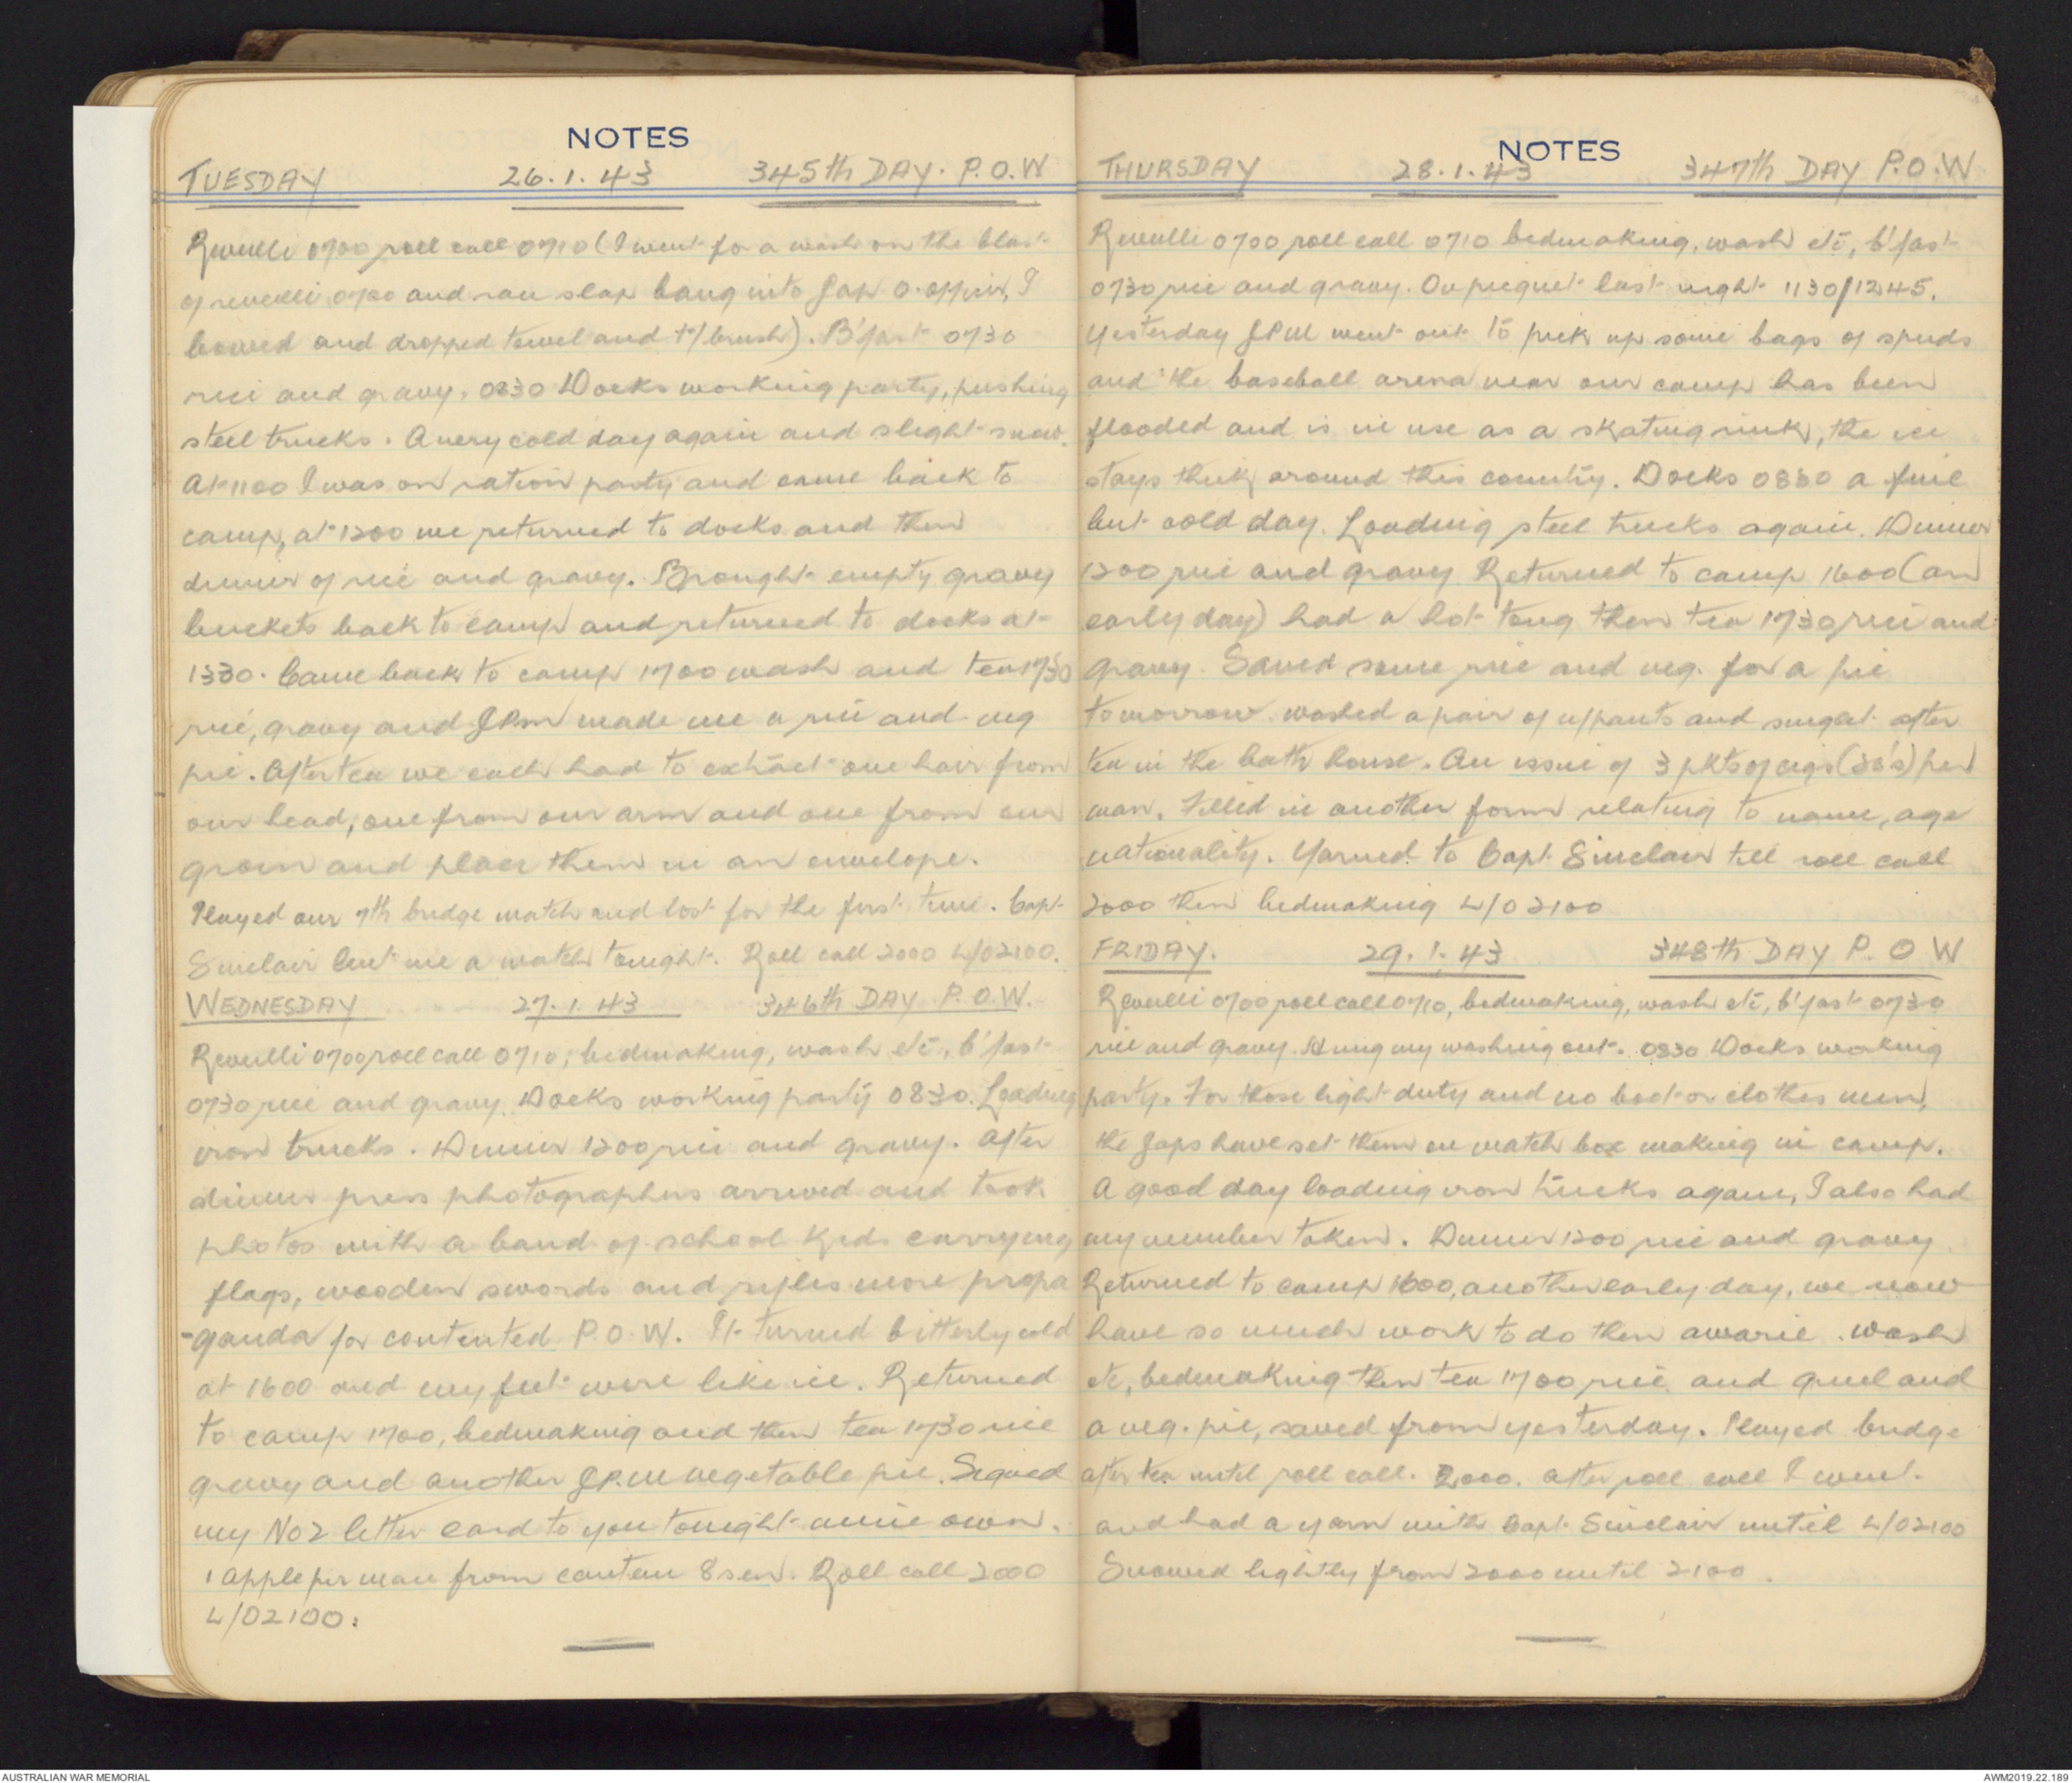 NOTES
TUESDAY 26.1.43 345th DAY. P.O.W
Reveille 0700 roll call 0710 (I went for a wash on the blast
of reveille 0700 and ran slap bang into Jap O. officer, I
bowed and dropped towel and t/brush). B'fast 0730
rice and gravy. 0830 Docks working party, pushing
steel trucks. A very cold day again and slight snow.
At 1100 I was on ration party and came back to
camp, at 1200 we returned to docks and then
dinner of rice and gravy. Brought empty gravy
buckets back to camp and returned to docks at
1330. Came back to camp 1700 wash and tea 1730
rice, gravy and JPM made me a rice and veg
pie. After tea we each had to extract one hair from
our head, one from our arm and one from our
groin and place them in an envelope.
Played our 7th bridge match and lost for the first time. Capt.
Sinclair lent me a watch tonight. Roll call 2000 L/O 2100.
WEDNESDAY 27.1.43 346th DAY P.O.W.
Reveille 0700 roll call 0710, bedmaking, wash etc, b'fast
0730 rice and gravy. Docks working party 0830. Loading
iron trucks. Dinner 1200 rice and gravy. After
dinner press photographers arrived and took
photos with a band of school kids carrying
flags, wooden swords and rifles more propa
-ganda for contented P.O.W. It turned bitterly cold
at 1600 and my feet were like ice. Returned
to camp 1700, bedmaking and then tea 1730 rice
gravy and another JP.M vegetable pie. Signed
my No 2 letter card to you tonight mine own.
1 apple per man from canteen 8 sen. Roll call 2000
L/O 2100.
NOTES
THURSDAY 28.1.43 347th DAY P.O.W
Reveille 0700 roll call 0710 bedmaking, wash etc, b'fast
0730 rice and gravy. On picquet last night 1130/1245.
Yesterday JPM went out to pick up some bags of spuds
and the baseball arena near our camp has been
flooded and is in use as a skating rink, the ice
stays thick around this country. Docks 0830 a fine
but cold day. Loading steel trucks again. Dinner
1200 rice and gravy Returned to camp 1600 (an
early day) had a hot tong then tea 1730 rice and
gravy. Saved some rice and veg. for a pie
tomorrow. washed a pair of u/pants and singlet after
tea in the bath house. An issue of 3 pkts of cigs (30's) per
man. Filled in another form relating to name, age
nationality. Yarned to Capt. Sinclair till roll call
2000 then bedmaking L/O 2100
FRIDAY. 29.1.43 348th DAY P. O W
Reveille 0700 roll call 0710, bedmaking, wash etc, b'fast 0730
rice and gravy. Hung my washing out. 0830 Docks working
party. For those light duty and no boot or clothes men,
the Japs have set them on match box making in camp.
A good day loading iron trucks again, I also had
my number taken. Dinner 1200 rice and gravy
Returned to camp 1600, another early day, we now
have so much work to do then awarie. wash
etc, bedmaking then tea 1700 rice and gruel and
a veg. pie, saved from yesterday. Played bridge
after tea until roll call. 2000. After roll call I went
and had a yarn with Capt. Sinclair until L/O 2100
Snowed lightly from 2000 until 2100.
AUSTRALIAN WAR MEMORIAL
AWM2019.22.189